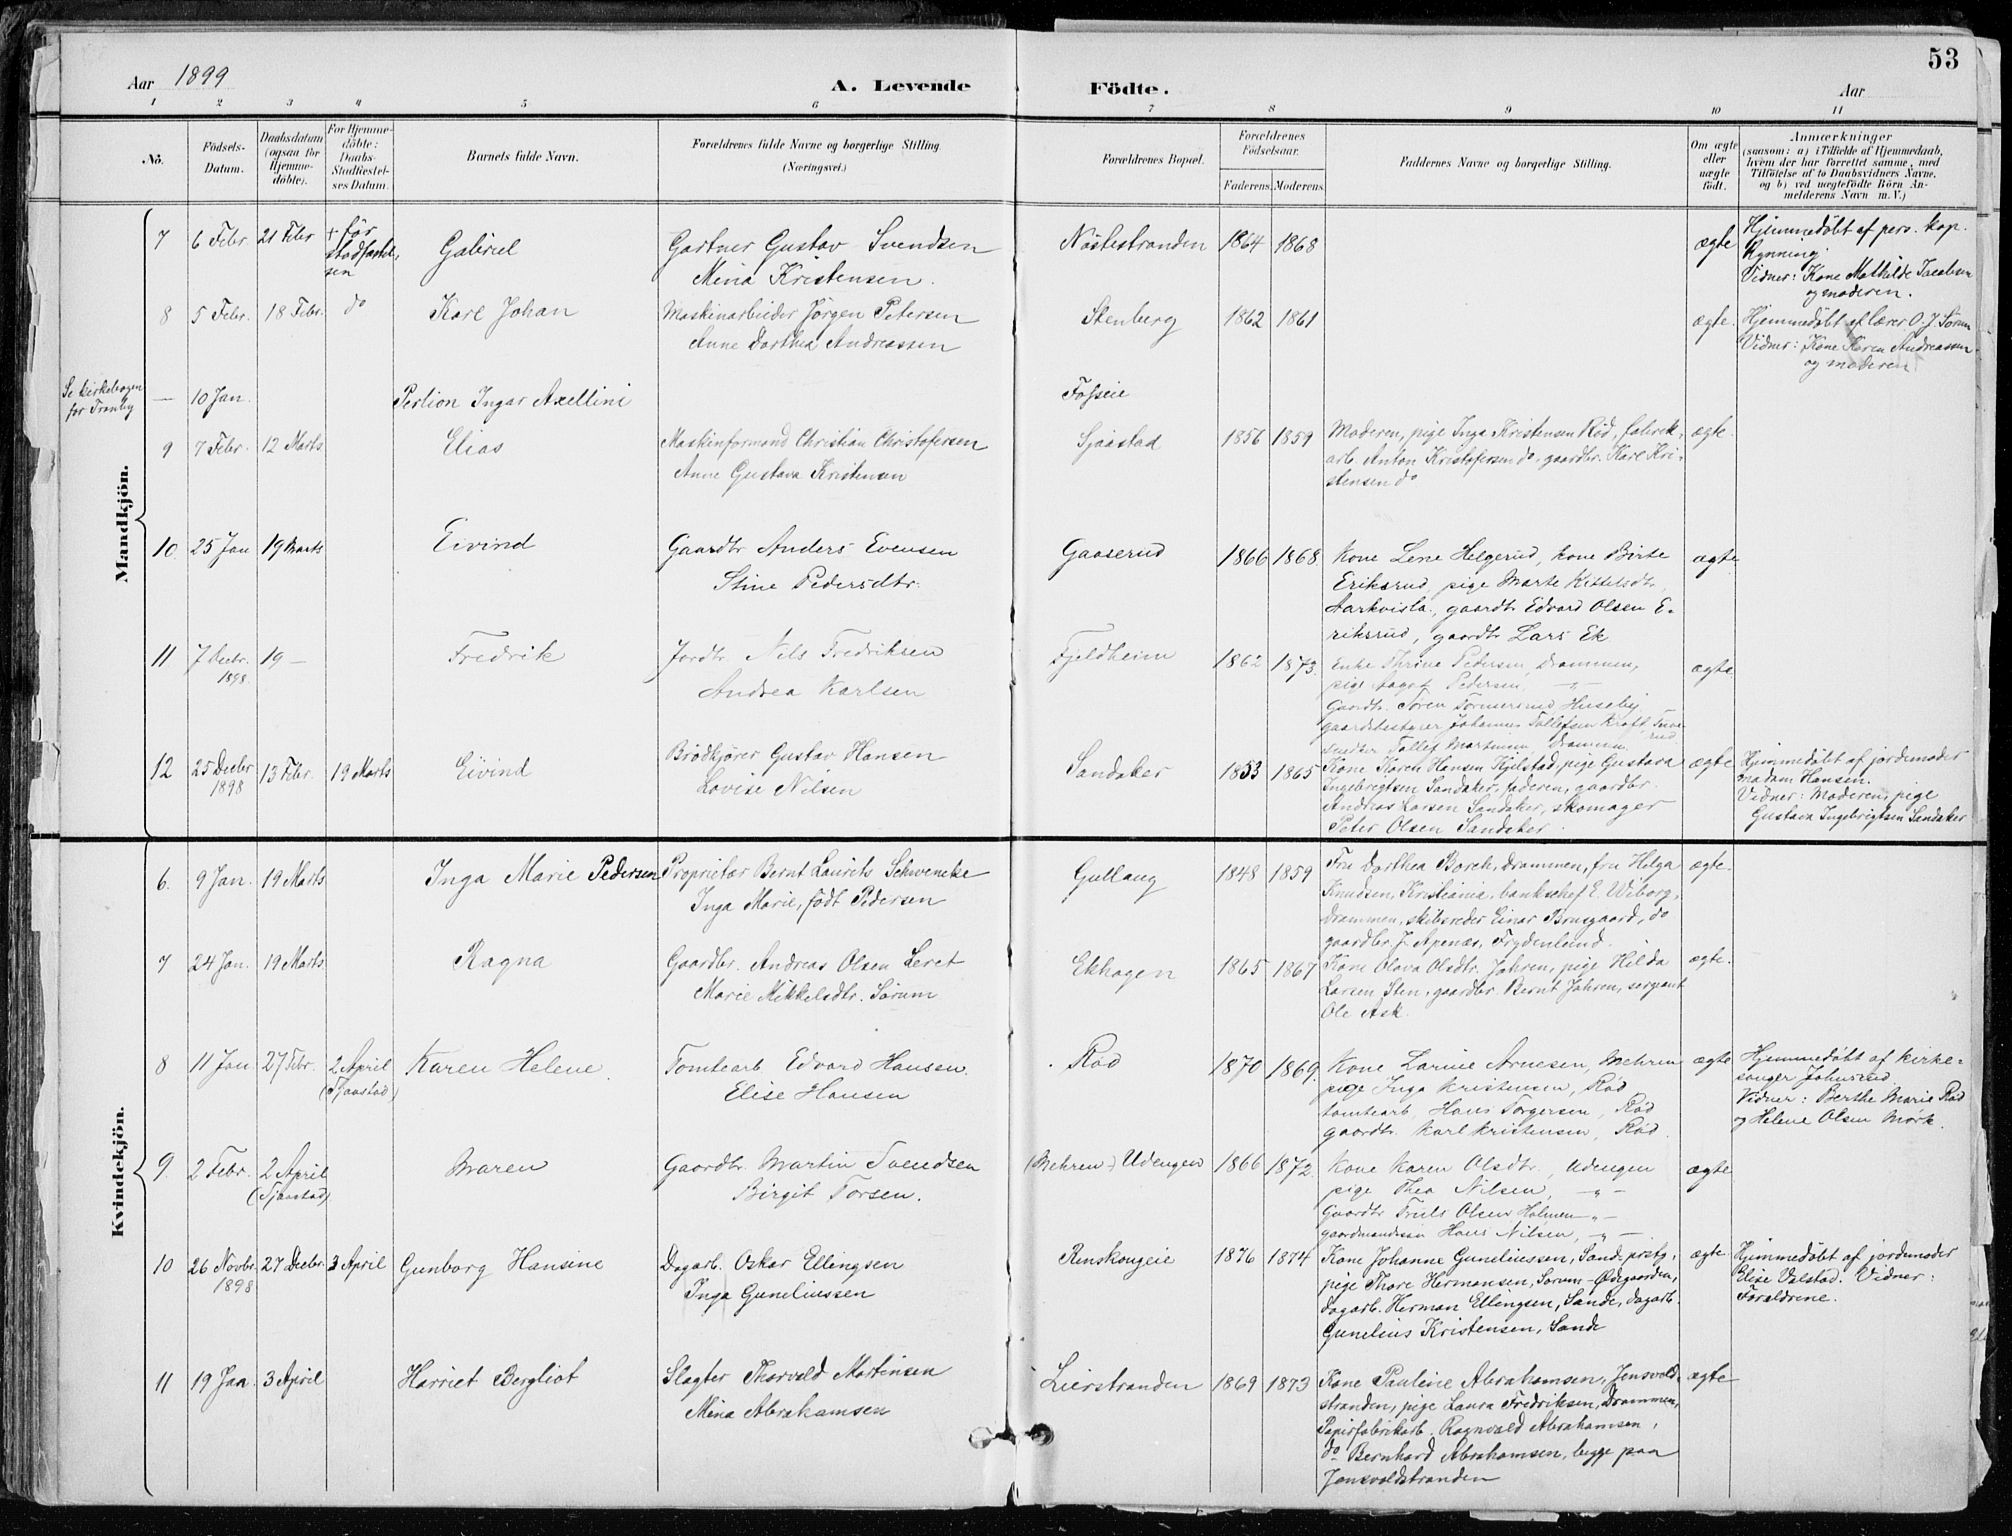 53
Aar 1899
A. Levende Födte.
Aar
1 2 3 4 5 6 7 8 9 10 11
No.
Födsels-
Datum.
Daabsdatum
(ogsaa for
Hjemme-
döbte).
For Hjemme-
döbte:
Daabs-
Stadfæstel-
ses Datum.
Barnets fulde Navn.
Forældrenes fulde Navne og borgerlige Stilling.
(Næringsvei.)
Forældrenes Bopæl.
Forældrenes
Födselsaar.
Faderens. Moderens.
Faddernes Navne og borgerlige Stilling.
Om ægte
eller
uægte
födt.
Anmærkninger
(saasom: a) i Tilfælde af Hjemmedaab,
hvem der har forrettet samme, med
Tilföielse af to Daabsvidners Navne,
og b) ved uægtefödte Börn An-
melderens Navn m. V.)
Mandkjön.
7 6 Febr. 21 Febr + før
stadfæstel-
sen
Gabriel
Gartner Gustav Svendsen
Mina Kristensen.
Nøstestranden 1864 1868 ægte
Hjemmedøbt af pers. kap.
Rynning
Vidner: Kone Mathilde Jacobsen
og moderen.
8 5 Febr. 18 Febr. do Karl Johan
Maskinarbeider Jørgen Petersen
Anne Dorthea Andreassen
Stenberg 1862 1861 ægte.
Hjemmedøbt af lærer O. J. Sørum
Vidner: Kone Karen Andreassen
og moderen
Se kirkebogen
for Tranby
— 10 Jan. Perlion Ingar Axellini Fosseie
9 7 Febr. 12 Marts Elias
Maskinformand Christian Christofersen
Anne Gustava Kristensen
Sjaastad 1856 1859
Moderen, pige Inga Kristensen Rød, fabrik-
arb. Anton Kristofersen do, gaardbr. Karl Kri-
stensen do
ægte.
10 25 Jan 19 Marts Eivind
Gaardbr Anders Evensen
Stine Pedersdtr.
Gaaserud 1866 1868
Kone Lene Helgerud, kone Birte
Eriksrud, pige Marte Kittelsdtr
Aarkvisla, gaardbr Edvard Olsen E-
riksrud, gaardbr Lars Ek
ægte
11 7 Decbr. 19 —
1898.
Fredrik
Jordbr. Nils Fredriksen
Andrea Karlsen
Fjeldheim 1862 1873.
Enke Thrine Pedersen, Drammen,
pige Aagot Pedersen, — " —
Gaardbr. Søren Huseby
gaardbestyrer Johannes Tollefsen Kraft,
Tollef Martinsen, Drammen.
ægte
12 25 Decbr 13 Febr. 19 Marts
1898
Eivind
Brødkjører Gustav Hansen
Lovise Nilsen
Sandaker 1853 1865
Kone Karen Hansen Kjelstad, pige Gustava
Ingebrigtsen Sandaker, faderen, gaardbr.
Andreas Larsen Sandaker, skomager
Peter Olsen Sandaker.
ægte
Hjemmedøbt af jordemoder
madam Hansen.
Vidner: Moderen, pige
Gustava Ingebrigtsen Sandaker
Kvindekjön.
6. 9 Jan. 19 Marts Inga Marie Pedersen
Proprietær Bernt Laurits Schwencke
Inga Marie, født Pedersen
Gullaug 1848 1859
Fru Dorthea Borch, Drammen, fru Helga
Knudsen, Kristiania, bankchef E. Wiborg,
Drammen, skibsreder Einar Brusgaard, do
gaardbr. J. Apenæs, Frydenlund.
ægte.
7 24 Jan. 19 Marts Ragna
Gaardbr. Andreas Olsen Leret
Marie Mikkelsdtr. Sørum
Ekhagen 1865 1867
Kone Olava Olsdtr. Jahren, pige Hilda
Larsen Sten, gaardbr. Bernt Jahren, sergeant
Ole Ask.
ægte.
8 11 Jan 27 Febr. 2 April
(Sjaastad)
Karen Helene.
Tomtearb Edvard Hansen.
Elise Hansen
Rød 1870 1869.
Kone Larine Arnesen, Mehren
pige Inga Kristensen, Rød
tomtearb. Hans Torgersen, Rød
gaardbr. Karl Kristensen, Rød.
ægte
Hjemmedøbt af kirke-
sanger Johnsrud
Vidner: Berthe Marie Rød
og Helene Olsen Mørk.
9. 2 Febr. 2 April
(Sjaastad)
Maren
Gaardbr. Martin Svendsen
Birgit Torsen.
(Mehren-) Udengen 1866 1872.
Kone Karen Olsdtr., Udengen
pige Thea Nilsen, — " —
Gaardbr Truls Olsen Holmen — " —
gaardmandssøn Hans Nilsen, — " —
ægte
10 26 Novbr. 27 Decbr. 3 April
1898
Gunborg Hansine
Dagarb. Oskar Ellingsen
Inga Guneliussen
Renskougeie 1876 1874
Kone Johanne Guneliussen, Sande prstg.,
pige Thore Hermansen, Sørum-Ødegaarden,
dagarb. Herman Ellingsen, Sande, dagarb.
Gunelius Kristensen, Sande
ægte.
Hjemmedøbt af jordemoder
Elise Valstad. Vidner:
Forældrene.
11 19 Jan 3 April Harriet Bergliot
Slagter Thorvald Martinsen
Mina Abrahamsen
Lierstranden 1869 1873
Kone Pauline Abrahamsen, Jensvold-
stranden, pige Laura Fredriksen, Drammen,
Papirfabrikarb. Ragnvald Abrahamsen,
do Bernhard Abrahamsen, begge paa
Jensvoldstranden
ægte